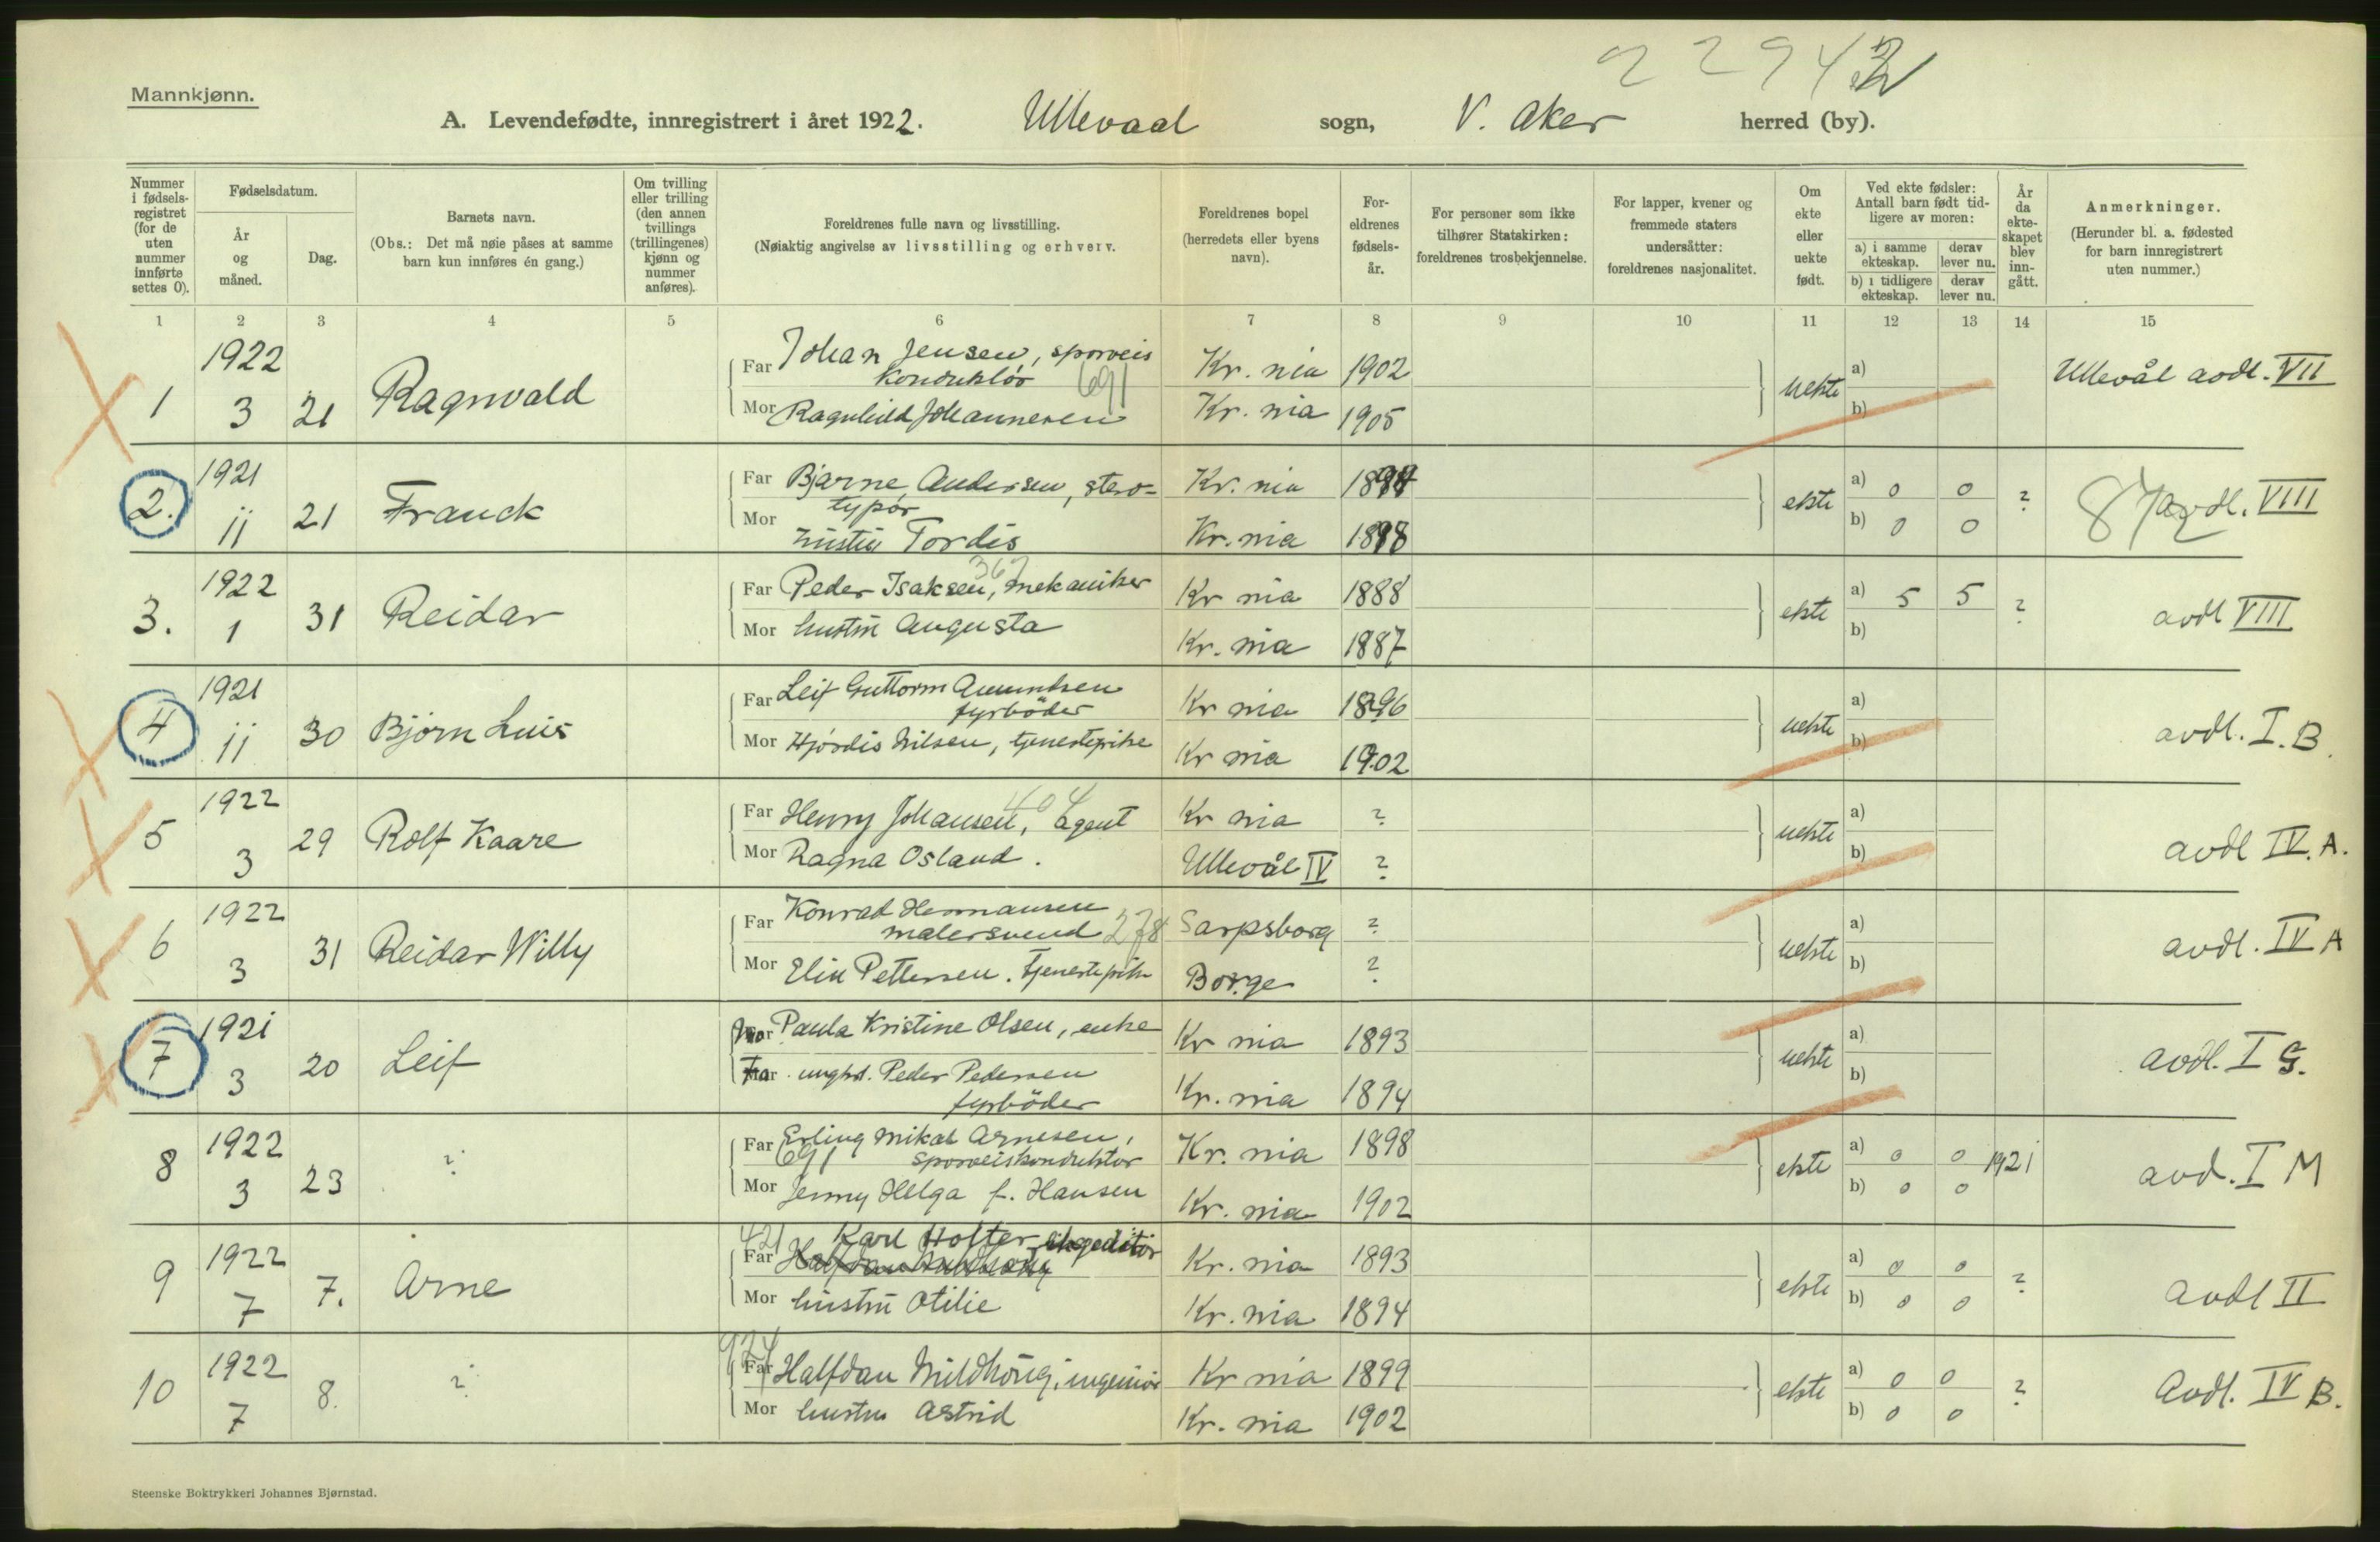 22942
Mannkjønn.
A. Levendefødte, innregistrert i året 1922. Ullevaal sogn, V. Aker herred (by).
Nummer i fødselsregistret (for de uten nummer innførte settes 0).
Fødselsdatum.
År og måned.
Dag.
Barnets navn.
(Obs.: Det må nøie påses at samme barn kun innføres én gang.)
Om tvilling eller trilling (den annen tvillings (trillingenes) kjønn og nummer anføres).
Foreldrenes fulle navn og livsstilling.
(Nøiaktig angivelse av livsstilling og erhverv.
Foreldrenes bopel (herredets eller byens navn).
Foreldrenes fødselsår.
For personer som ikke tilhører Statskirken: foreldrenes trosbekjennelse.
For lapper, kvener og fremmede staters undersåtter: foreldrenes nasjonalitet.
Om ekte eller uekte født.
Ved ekte fødsler: Antall barn født tidligere av moren:
a) i samme ekteskap.
derav lever nu.
b) i tidligere ekteskap.
derav lever nu.
År da ekteskapet blev inngått.
Anmerkninger.
(Herunder bl. a. fødested for barn innregistrert uten nummer.)
1 2 3 4 5 6 7 8 9 10 11 12 13 14 15
1 1922 3 21 Ragnvald
Far Johan Jensen, sporveis konduktör 691 Kr. nia 1902
Mor Ragnhild Johannesen Kr. nia 1905
uekte a) b) Ullevål avdl. VII
2. 1921 11 21 Franck
Far Bjarne Andersen, stero-typør Kr. nia
Mor hustru Tordis Kr. nia 1898
ekte a) 0 0 b) 0 0 ? 872 avdl. VIII
3. 1922 1 31 Reidar
Far Peder Isaksen, mekaniker 367 Kr nia 1888
Mor hustru Augusta Kr. nia 1887
ekte a) 5 5 b) ? avdl VIII
4 1921 11 30 Bjørn Luis
Far Leif Guttorm Amundsen fyrböder Kr nia 1896
Mor Hjördis Nilsen, tjenestepike Kr nia 1902
uekte a) b) avdl. I.B.
5 1922 3 29 Rolf Kaare
Far Henry Johansen, agent 404 Kr nia ?
Mor Ragna Osland. Ullevål IV ?
uekte a) b) avdl IV.A.
6 1922 3 31 Reidar Willy
Far Konrad Hermansen malersvend 278 Sarpsborg ?
Mor Elin Pettersen. tjenestepike Borge ?
uekte a) b) avdl. IV A
7 1921 3 20 Leif
Mor Paula Kristine Olsen, enke Kr nia 1893
Far ungk. Peder Pedersen fyrböder Kr. nia 1894
uekte a) b) avdl. I G.
8 1922 3 23 ?
Far Erling Mikal Arnesen, sporveiskonduktør 691 Kr. nia 1898
Mor Jenny Helga f. Hansen Kr. nia 1902
ekte a) 0 0 b) 0 0 1921 avd. I M
9 1922 7 7. Arne
421 Karl Hofter, ekspeditør
Far Kr. nia 1893
Mor hustru Otilie Kr. nia 1894
ekte a) 0 0 b) 0 0 ? avdl II
10 1922 7 8. ?
924
Far Halfdan Mildhöng, ingeniør Kr nia 1899
Mor hustru Astrid Kr. nia 1902
ekte a) 0 0 b) 0 0 ? Avdl. IV B.
Steenske Boktrykkeri Johannes Bjørnstad.